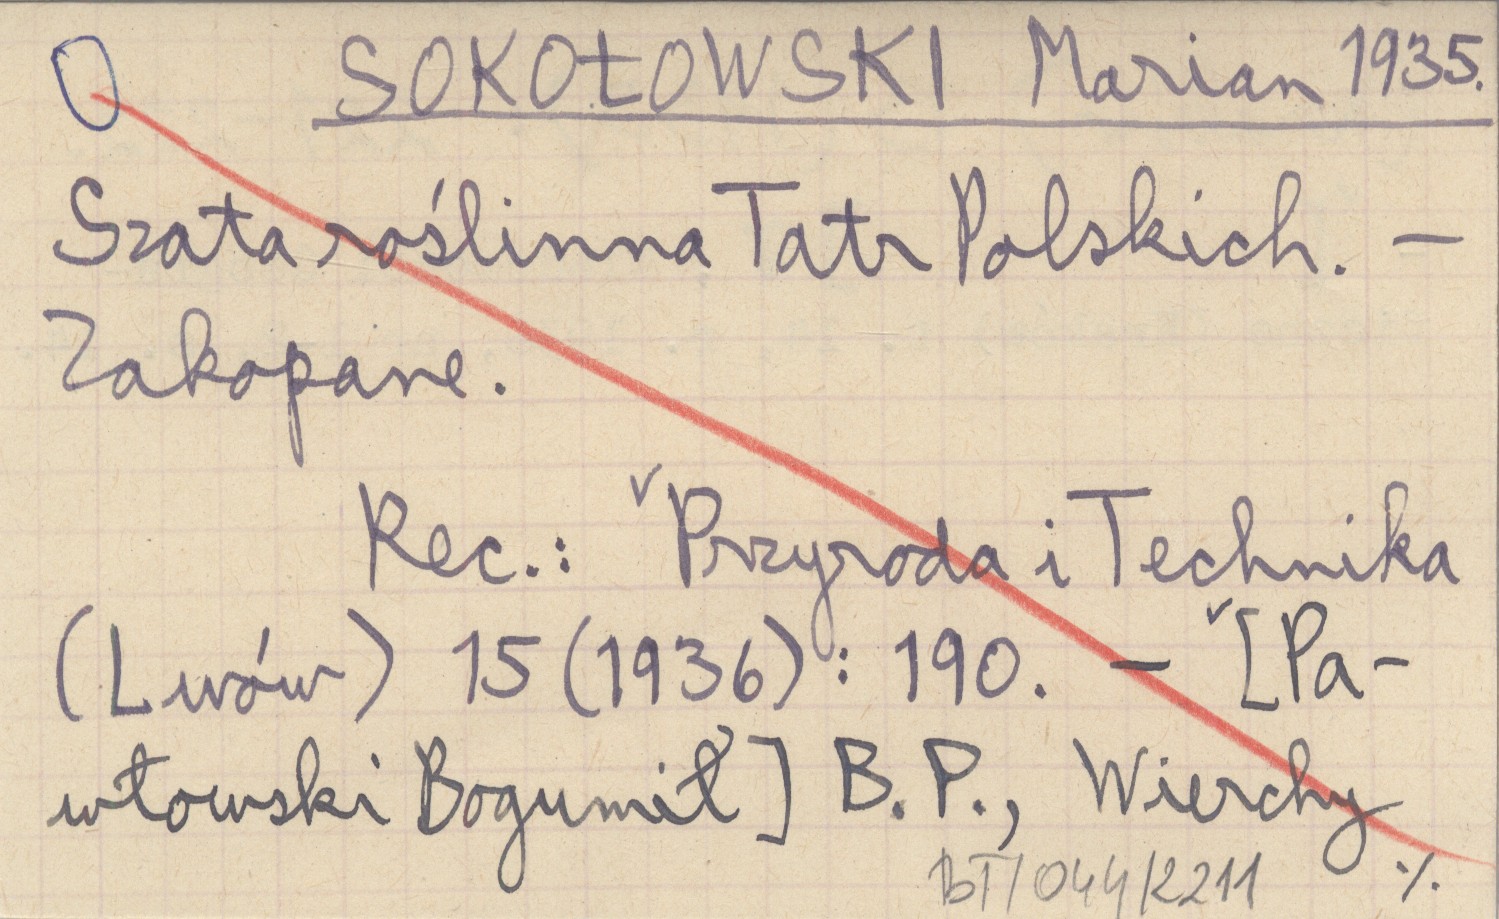 SOKOŁOWSKI Marian 1935.
Szata roślinna Tatr Polskich. —
Zakopane.
Rec.: ᵛPrzyroda i Technika
(Lwów) 15 (1936): 190. — ᵛ[Pa-
włowski Bogumił] B.P., Wierchy
BT/044/2211 ./.